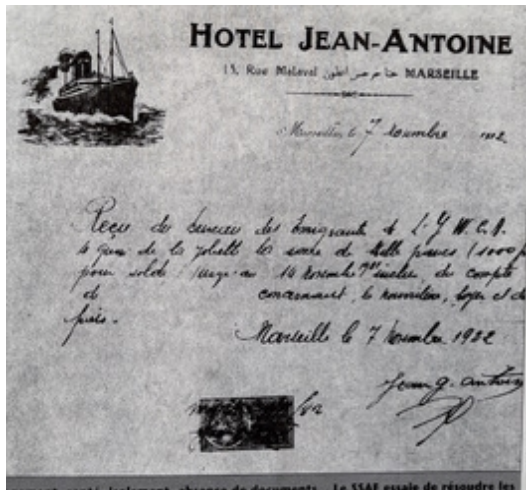 HOTEL JEAN-ANTOINE
13, Rue Malaval MARSEILLE
Marseille, le 7 novembre 192
Reçu du bureau des émigrants d L. Y. W. C. A.
de la Joliette la somme de mille francs (1000
pour solde au 14 novembre du compte
de concernant la nourriture, loyer et
frais.
Marseille le 7 novembre 1922
Jean g. antoin
absence de documents... Le SSAE essaie de résoudre les